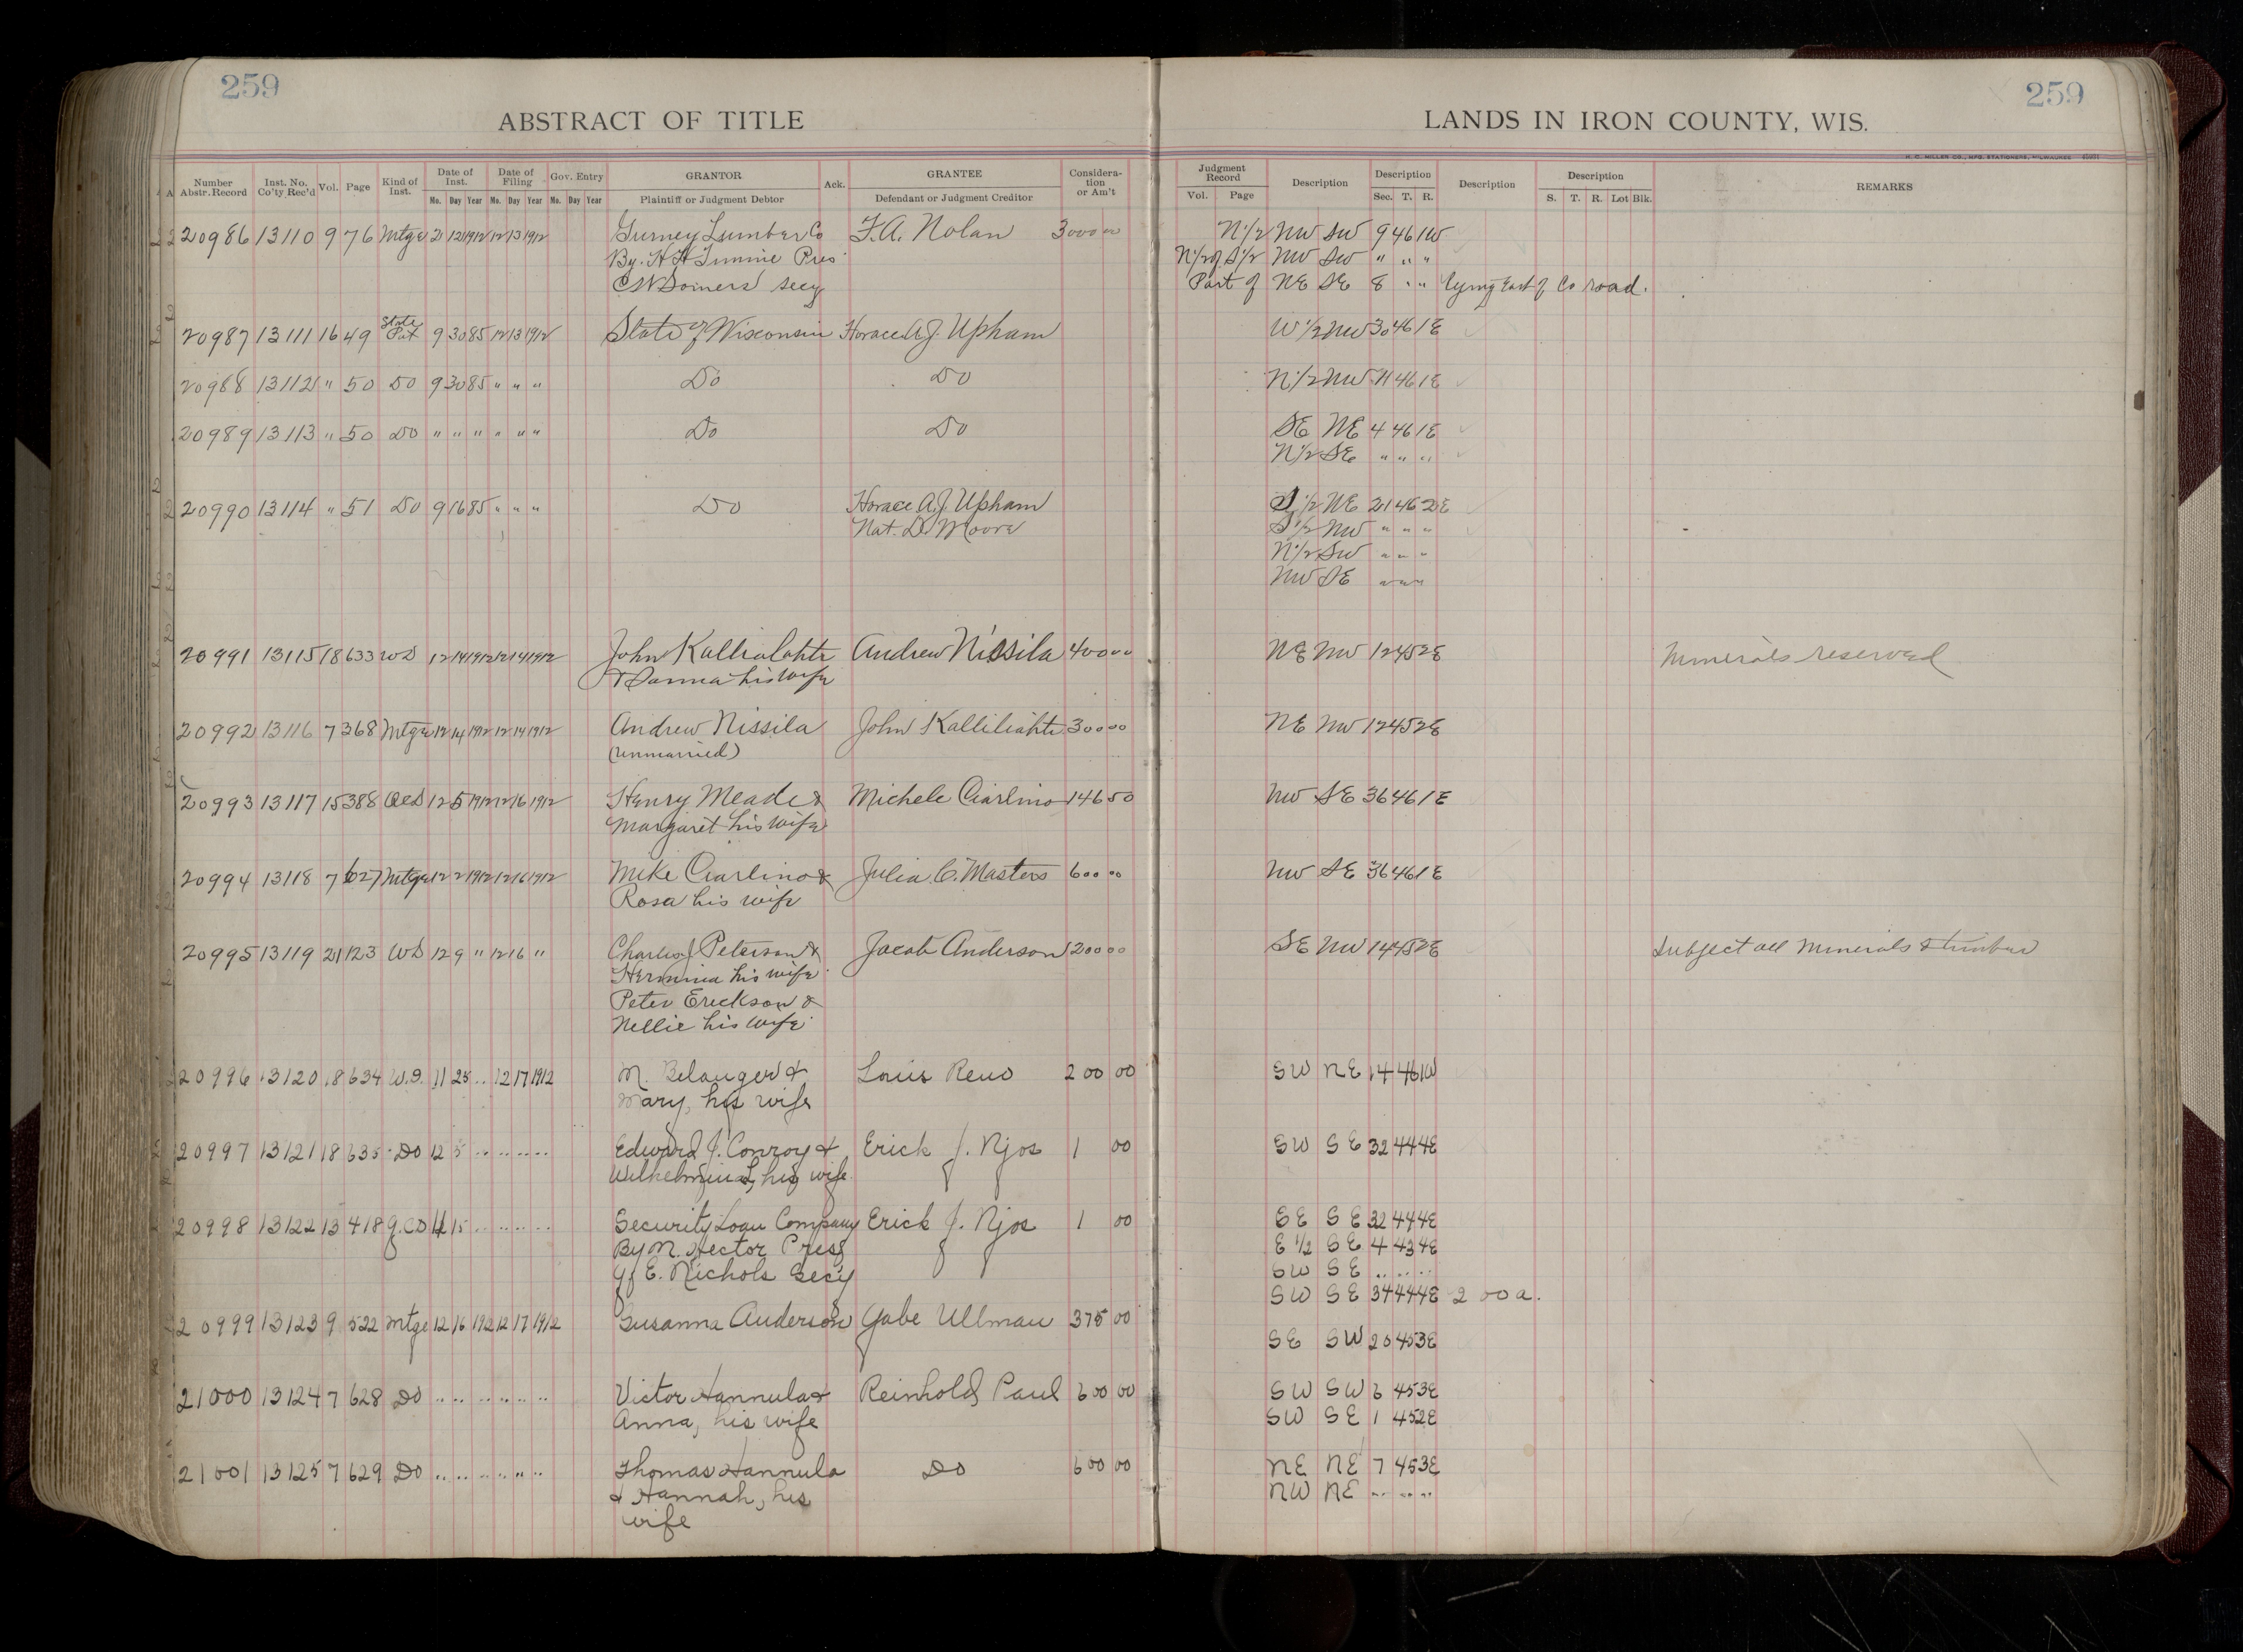 259
259
ABSTRACT OF TITLE
LANDS IN IRON COUNTY, WIS.
H. C. MILLER CO., MFG. STATIONERS, MILWAUKEE
Number Abstr. Record Inst. No. Co'ty Rec'd Vol. Page Kind of Inst. Date of Inst. Mo. Day Year Date of Filing Mo. Day Year Gov. Entry Mo. Day Year GRANTOR Plaintiff or Judgment Debtor Ack. GRANTEE Defendant or Judgment Creditor Considera-tion or Am't
Judgment Record Vol. Page Description Description Sec. T. R. Description Description S. T. R. Lot Blk. REMARKS
20986 13110 9 76 Mtge 12 1912 12 13 1912 Gurney Lumber Co F. A. Nolan 3000 00 N 1/2 NW SW 9 46 1W
By. Pres N 1/2 of S 1/2 NW SW " " "
Secy Part of NE SE 8 " " Lying East of Co road.
20987 13111 16 49 State Pat 9 30 85 12 13 1912 State of Wisconsin Horace A. J. Upham W 1/2 NW 30 46 1E
20988 13112 " 50 Do 9 30 85 " " " Do Do N 1/2 NW 11 46 1E
20989 13113 " 50 Do " " " " " " Do Do SE NE 4 46 1E
N 1/2 SE " " "
20990 13114 " 51 Do 9 16 85 " " " Do Horace A. J. Upham S 1/2 NE 21 46 2E
Nat. D. Moore S 1/2 NW " " "
N 1/2 SW " " "
NW SE " " "
20991 13115 18 633 WD 12 14 1912 12 14 1912 John Andrew Nissila 400 00 NE NW 12 45 2E Minerals reserved
his wife
20992 13116 7 368 Mtge 12 14 1912 12 14 1912 Andrew Nissila John 300 00 NE NW 12 45 2E
(unmarried)
20993 13117 15 388 QCD 12 5 1912 12 16 1912 Henry Meade & Michele Ciarlino 146 50 NW SE 36 46 1E
Margaret his wife
20994 13118 7 627 Mtge 12 2 1912 12 16 1912 Mike Ciarlino & Julia C. Masters 600 00 NW SE 36 46 1E
Rosa his wife
20995 13119 21 123 WD 12 9 " 12 16 " Charles J Peterson & Jacob Anderson 1200 00 SE NW 14 45 2E Subject all Minerals & timber
Hermina his wife
Peter Erickson &
Nellie his wife
20996 13120 18 634 W.D. 11 25 .. 12 17 1912 M. Belanger & Louis Reno 200 00 SW NE 14 46 1W
Mary, his wife
20997 13121 18 635 Do 12 5 .. .. .. .. Edward J. Conroy & Erick J. Njos 1 00 SW SE 32 44 4E
Wilhelmina, his wife
20998 13122 13 418 Q.C.D 11 15 .. .. .. .. Security Loan Company Erick J. Njos 1 00 SE SE 32 44 4E
By M. Hector Pres E 1/2 SE 4 43 4E
E. Nichols Secy SW SE .. .. ..
SW SE 34 44 4E 2 00 a.
20999 13123 9 522 Mtge 12 16 1912 12 17 1912 Susanna Anderson Gabe Ullman 375 00
SE SW 20 45 3E
21000 13124 7 628 Do .. .. .. .. .. .. Victor Hannula & Reinhold Paul 600 00 SW SW 6 45 3E
Anna, his wife SW SE 1 45 2E
21001 13125 7 629 Do .. .. .. .. .. .. Thomas Hannula Do 600 00 NE NE 7 45 3E
& Hannah, his NW NE .. .. ..
wife